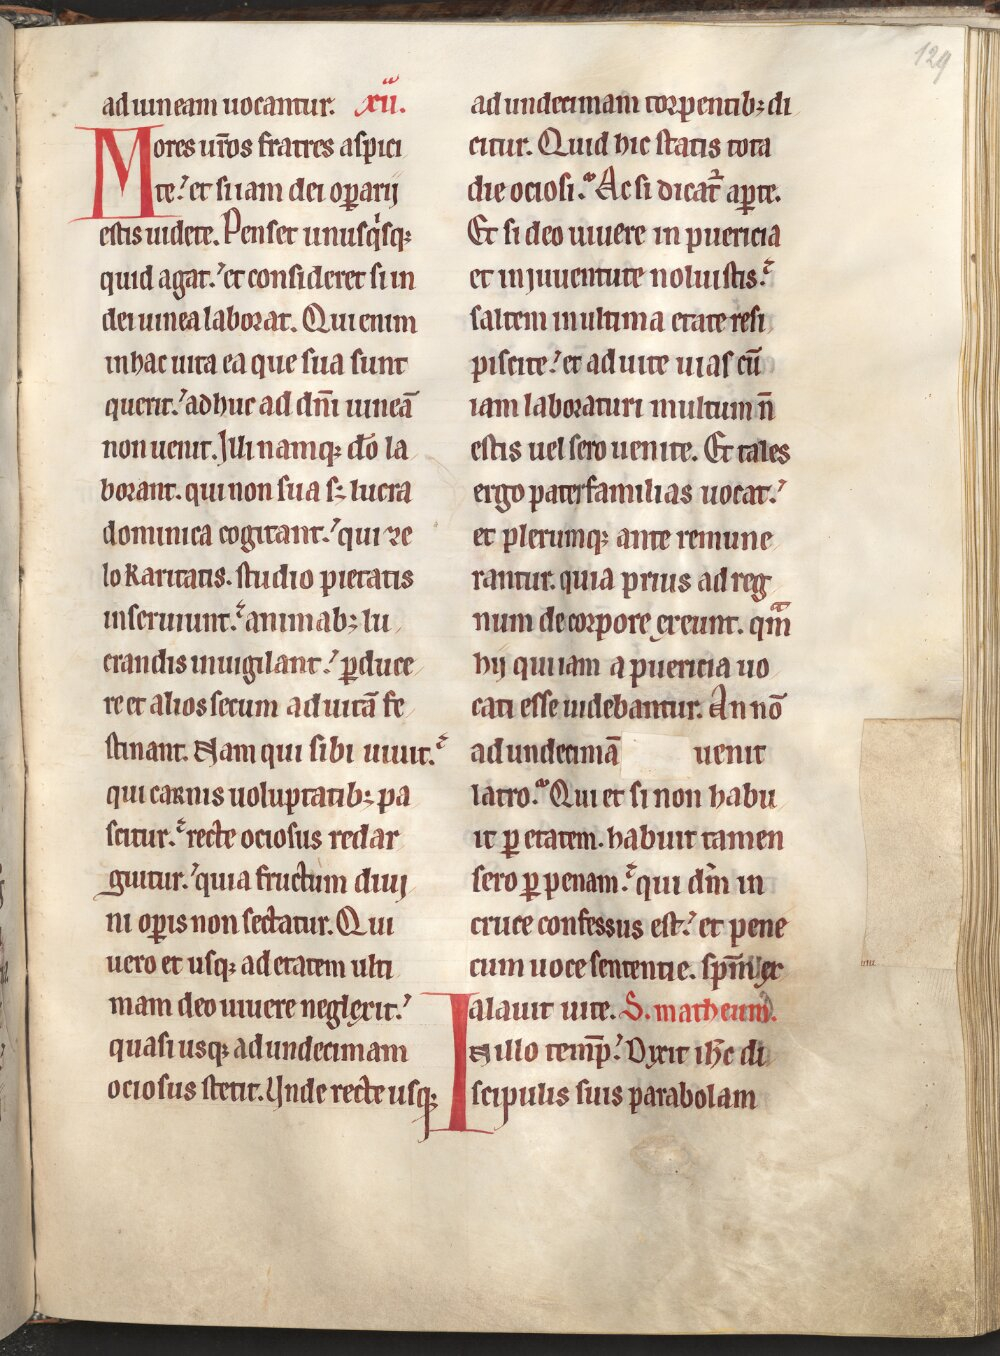 129
ad uineam uocantur. xii.
Mores ur̄os fratres aspici
te? et si iam dei oꝑarij
estis uidete. Penset unusq̇sq;
quid agat? et consideret si in
dei uinea laborat. Qui enim
in hac uita ea que sua sunt
querit? adhuc ad dn̄i uineā
non uenit. Illi namq; do̅ la
borant. qui non sua s; lucra
dominica cogitant? qui ze
lo karitatis. studio pietatis
inseruiunt? animab; lu
crandis inuigilant? ꝑduce
re et alios secum ad uitā fe
stinant. Nam qui sibi uiuit?
qui carnis uoluptatib; pa
scitur? recte ociosus redar
guitur? quia fructum diuj
ni oꝑis non sectatur. Qui
uero et usq; ad etatem ulti
mam deo uiuere neglexit?
quasi usq; ad undecimam
ociosus stetit. Unde recte usq;
ad undecimam torpentib; di
citur. Quid hic statis tota
die ociosi? Ac si dicat᷑ aꝑte.
Et si deo uiuere in puericia
et in juuentute noluistis?
saltem in ultima etate resi
piscite? et ad uite uias cū
iam laboraturi multum n̄
estis uel sero uenite. Et tales
ergo paterfamilias uocat?
et plerumq; ante remune
rantur. quia prius ad reg
num de corpore exeunt. qm̄
hij qui iam a puericia uo
cati esse uidebantur. An nō
ad undecimā uenit
latro? Qui et si non habu
it ꝑ etatem. habuit tamen
sero ꝑ penam? qui dm̄ in
cruce confessus est? et pene
cum uoce sententie. spm̄ ex
alauit uite. S. matheum.
In illo temp̄? Dixit ih̄c di
scipulis suis parabolam